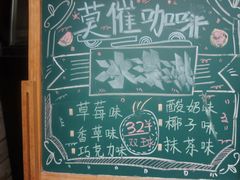 莫催咖啡
冰淇淋
草莓味 酸奶味
香草味 椰子味
巧克力味 抹茶味
32元
双球